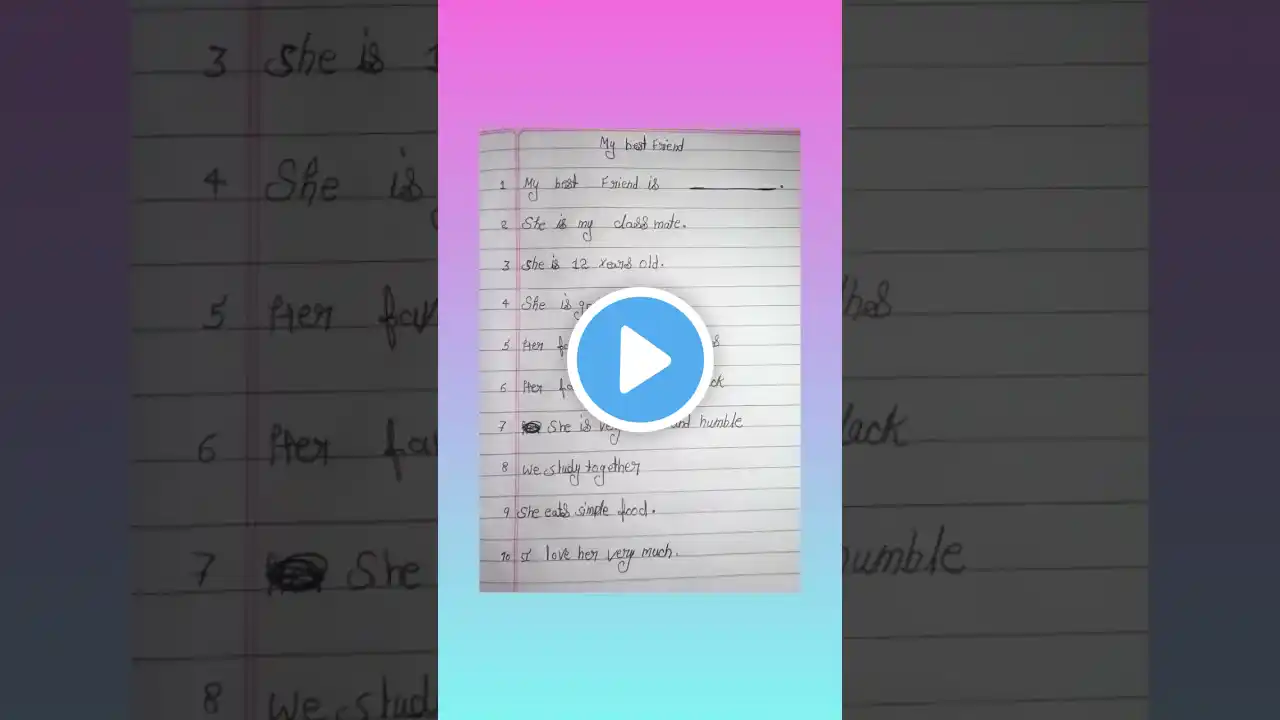 My best Friend
1 My best Friend is ________.
2 She is my class mate.
3 She is 12 Years old.
4 She is
5 Her
6 Her
7 She is very and humble
8 We study together
9 She eats simple food.
10 I love her very much.
3 She is
4 She is
5 Her
6 Her
7 She humble
8 We